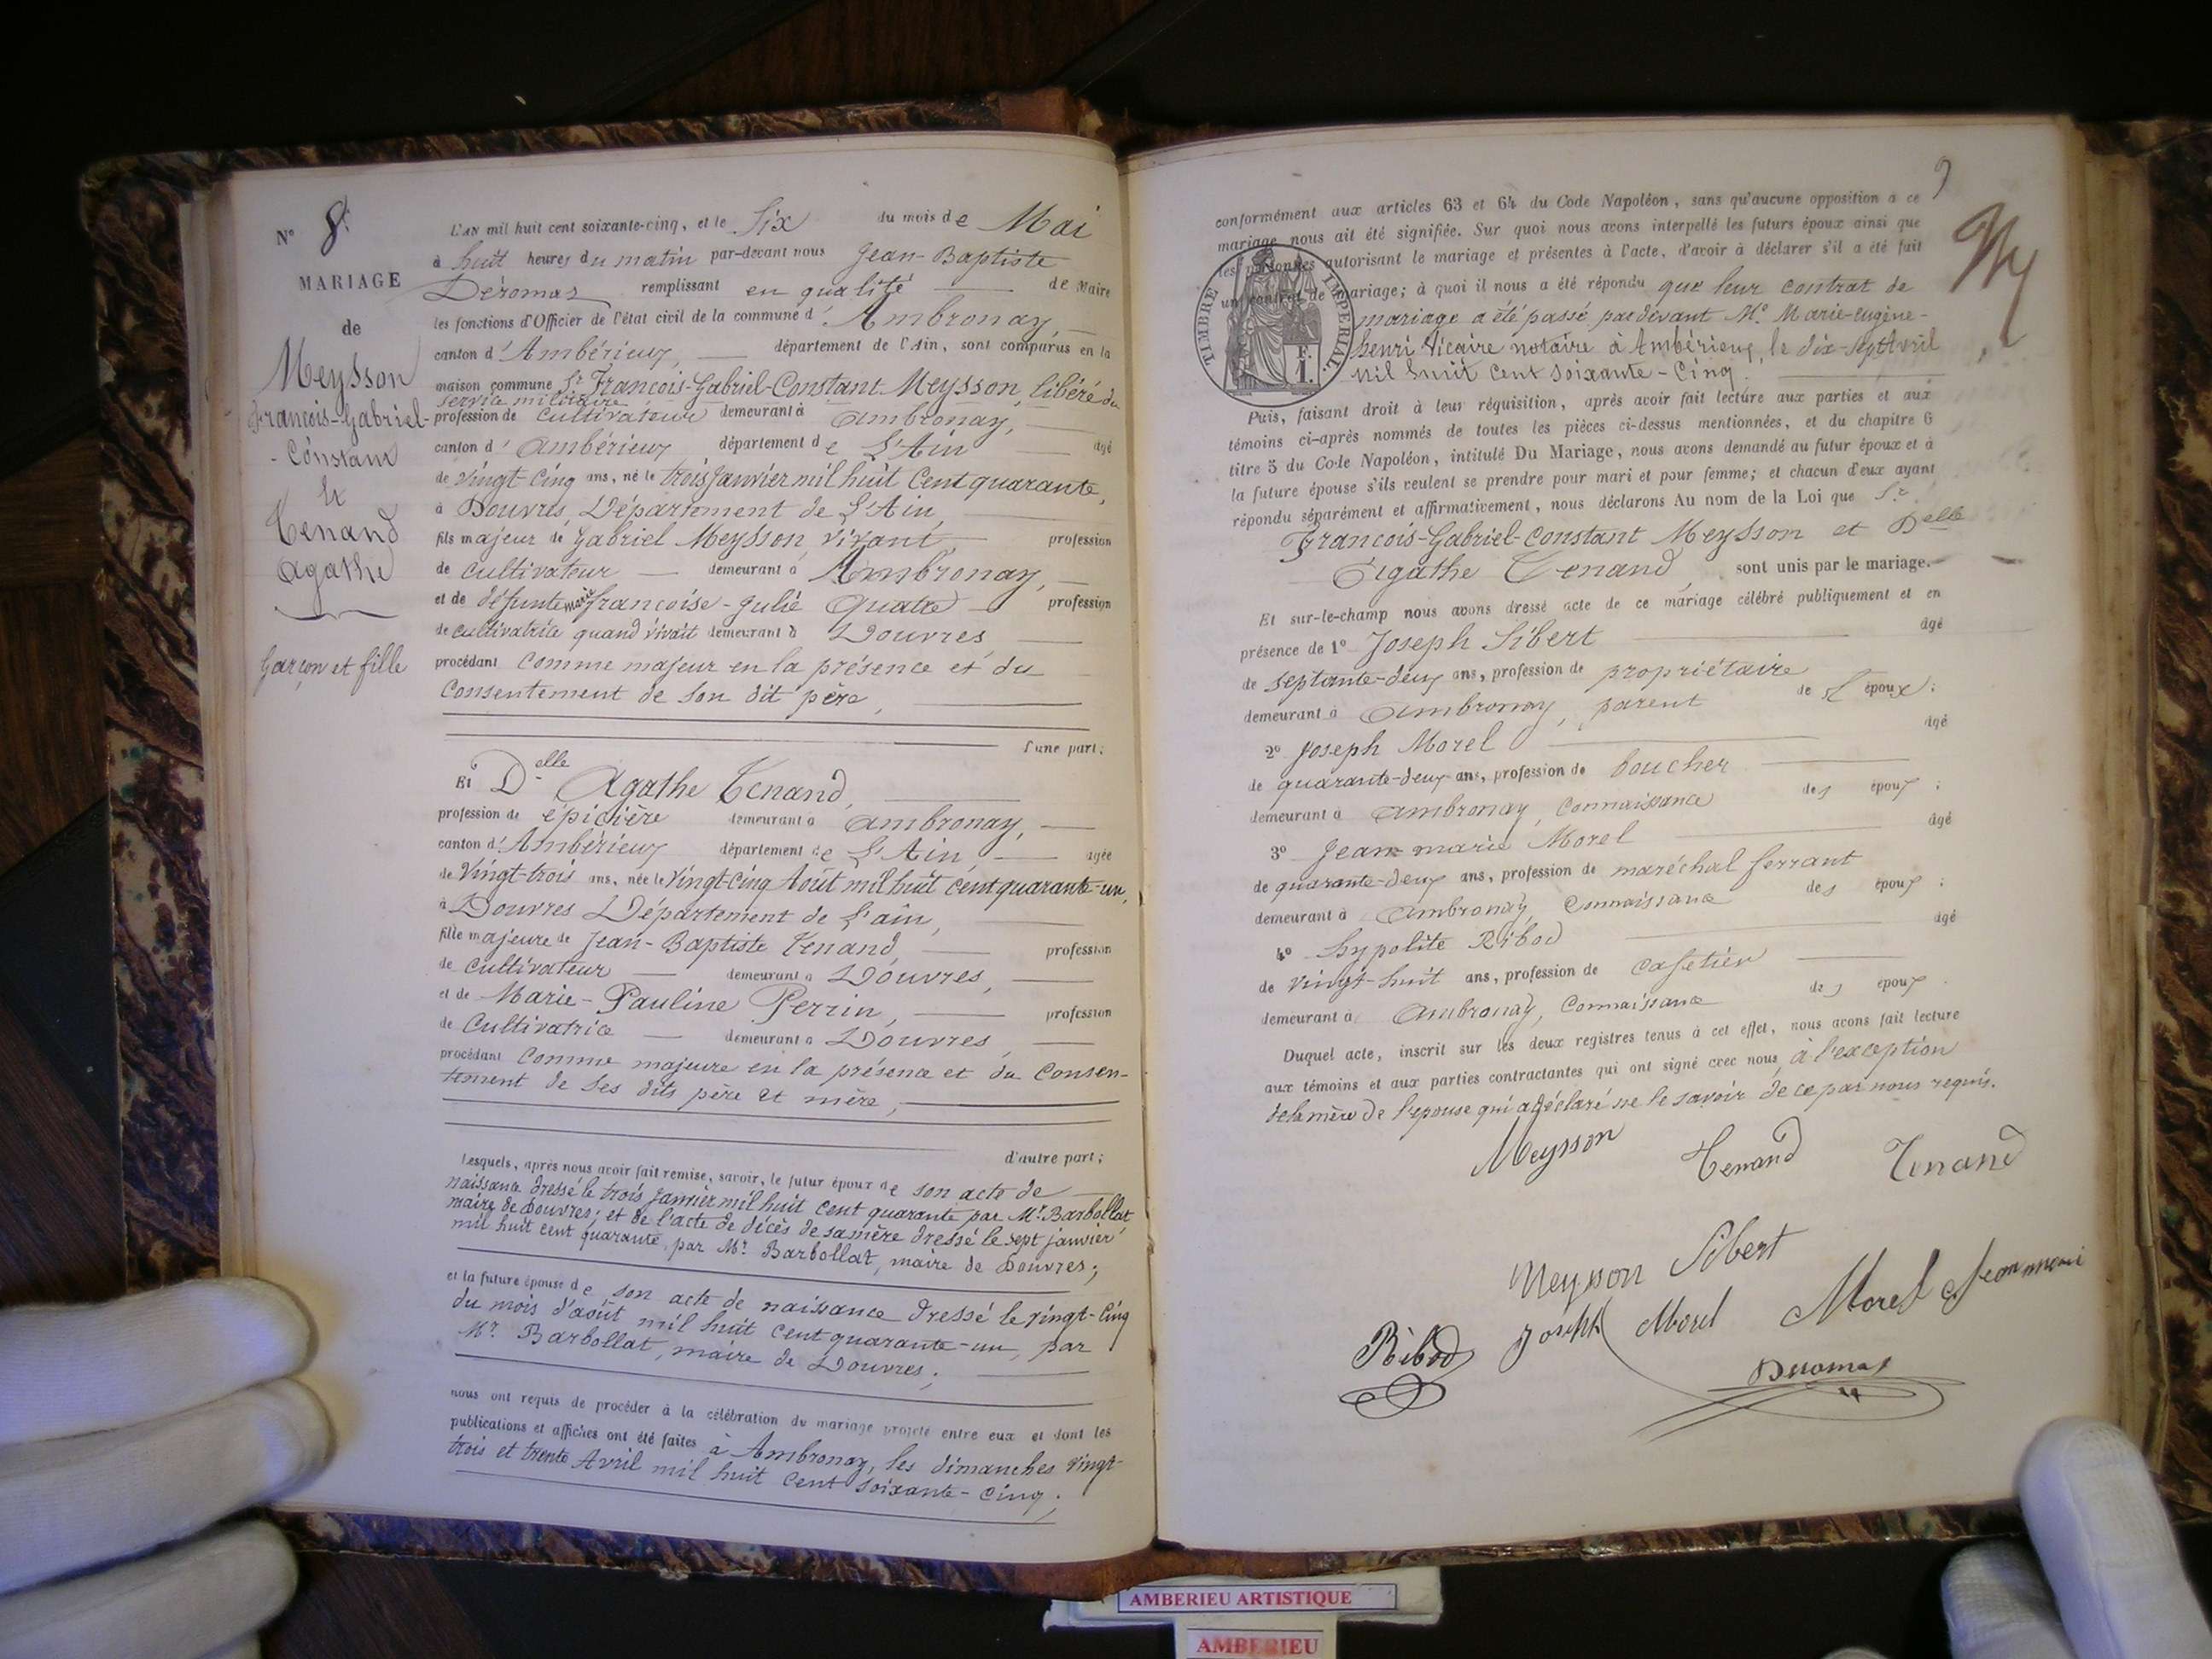 N° 8.
MARIAGE
de
Meysson
François-Gabriel-
- Constant
et
Tenand
Agathe
Garçon et fille
L'AN mil huit cent soixante-cinq, et le Six du mois de Mai
à huit heures du matin par-devant nous Jean-Baptiste
Déromas remplissant en qualité de Maire
les fonctions d'Officier de l'état civil de la commune d' Ambronay,
canton d' Ambérieux, département de l'Ain, sont comparus en la
maison commune Sr. François-Gabriel-Constant Meysson, libéré du
service militaire
profession de cultivateur demeurant à Ambronay,
canton d' Ambérieux département de L'Ain âgé
de vingt-cinq ans, né le trois Janvier mil huit cent quarante,
à Douvres, Département de L'Ain,
fils majeur de Gabriel Meysson, vivant, profession
de cultivateur demeurant à Ambronay,
et de défunte marie françoise-Julie Quatre profession
de cultivatrice quand vivait demeurant à Douvres
procédant comme majeur en la présence et du
consentement de son dit père,
d'une part;
Et Delle Agathe Tenand,
profession de épicière demeurant à Ambronay,
canton d' Ambérieux département de L'Ain, âgée
de vingt-trois ans, née le vingt-cinq Août mil huit cent quarante-un,
à Douvres Département de L'ain,
fille majeure de Jean-Baptiste Tenand, profession
de cultivateur demeurant à Douvres,
et de Marie-Pauline Perrin, profession
de cultivatrice demeurant à Douvres,
procédant comme majeure en la présence et du consen-
tement de ses dits père et mère,
d'autre part;
Lesquels, après nous avoir fait remise, savoir, le futur époux de son acte de
naissance dressé le trois janvier mil huit cent quarante par Mr. Barbollat,
maire de Douvres; et de l'acte de décès de sa mère dressé le sept janvier
mil huit cent quarante, par Mr. Barbollat, maire de Douvres;
et la future épouse de son acte de naissance dressé le vingt-cinq
du mois d'août mil huit cent quarante-un, par
Mr. Barbollat, maire de Douvres;
nous ont requis de procéder à la célébration du mariage projeté entre eux et dont les
publications et affiches ont été faites à Ambronay, les dimanches vingt-
trois et trente Avril mil huit cent soixante-cinq;
9
conformément aux articles 63 et 64 du Code Napoléon, sans qu'aucune opposition a ce
mariage nous ait été signifiée. Sur quoi nous avons interpellé les futurs époux ainsi que
les personnes autorisant le mariage et présentes à l'acte, d'avoir à déclarer s'il a été fait
un contrat de mariage; à quoi il nous a été répondu que leur contrat de
mariage a été passé pardevant Me. Marie-Eugène-
henri Vicaire notaire à Ambérieux, le dix-sept Avril
mil huit cent soixante-cinq.
TIMBRE IMPERIAL.
F.
1.
Puis, faisant droit à leur réquisition, après avoir fait lecture aux parties et aux
témoins ci-après nommés de toutes les pièces ci-dessus mentionnées, et du chapitre 6
titre 5 du Code Napoléon, intitulé Du Mariage, nous avons demandé au futur époux et à
la future épouse s'ils veulent se prendre pour mari et pour femme; et chacun d'eux ayant
répondu séparément et affirmativement, nous déclarons Au nom de la Loi que Sr.
François-Gabriel-Constant Meysson et Delle
Agathe Tenand, sont unis par le mariage.
Et sur-le-champ nous avons dressé acte de ce mariage célébré publiquement et en
présence de 1° Joseph Sibert âgé
de septante-deux ans, profession de propriétaire
demeurant à Ambronay, parent de l' époux;
2° Joseph Morel âgé
de quarante-deux ans, profession de boucher
demeurant à Ambronay, connaissance des époux;
3° Jean marie Morel âgé
de quarante-deux ans, profession de maréchal ferrant
demeurant à Ambronay, connaissance des époux;
4° hypolite Ribod âgé
de vingt-huit ans, profession de cafetier
demeurant à Ambronay, connaissance des époux
Duquel acte, inscrit sur les deux registres tenus à cet effet, nous avons fait lecture
aux témoins et aux parties contractantes qui ont signé avec nous, à l'exception
de la mère de l'épouse qui a déclaré ne le savoir de ce par nous requis.
Meysson Tenand Tenand
Meysson Sibert
Ribod Joseph Morel Morel Jean marie
Déromas
AMBERIEU ARTISTIQUE
AMBERIEU